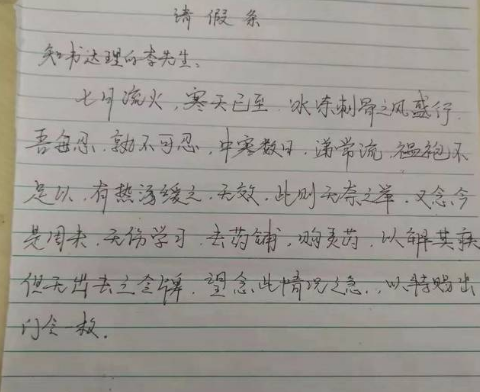 请假条
知书达理的李先生:
七月流火,寒天已至,冰冻刺骨之风盛行,
吾每忍,孰不可忍,中寒数日,涕常流,褞袍不
足以,有热汤缓之,无效,此则无奈之举,又念今
是周末,无伤学习,去药铺,购灵药,以解其
但无出去之金牌,望念此情况之急,以特赐出
门令一枚.